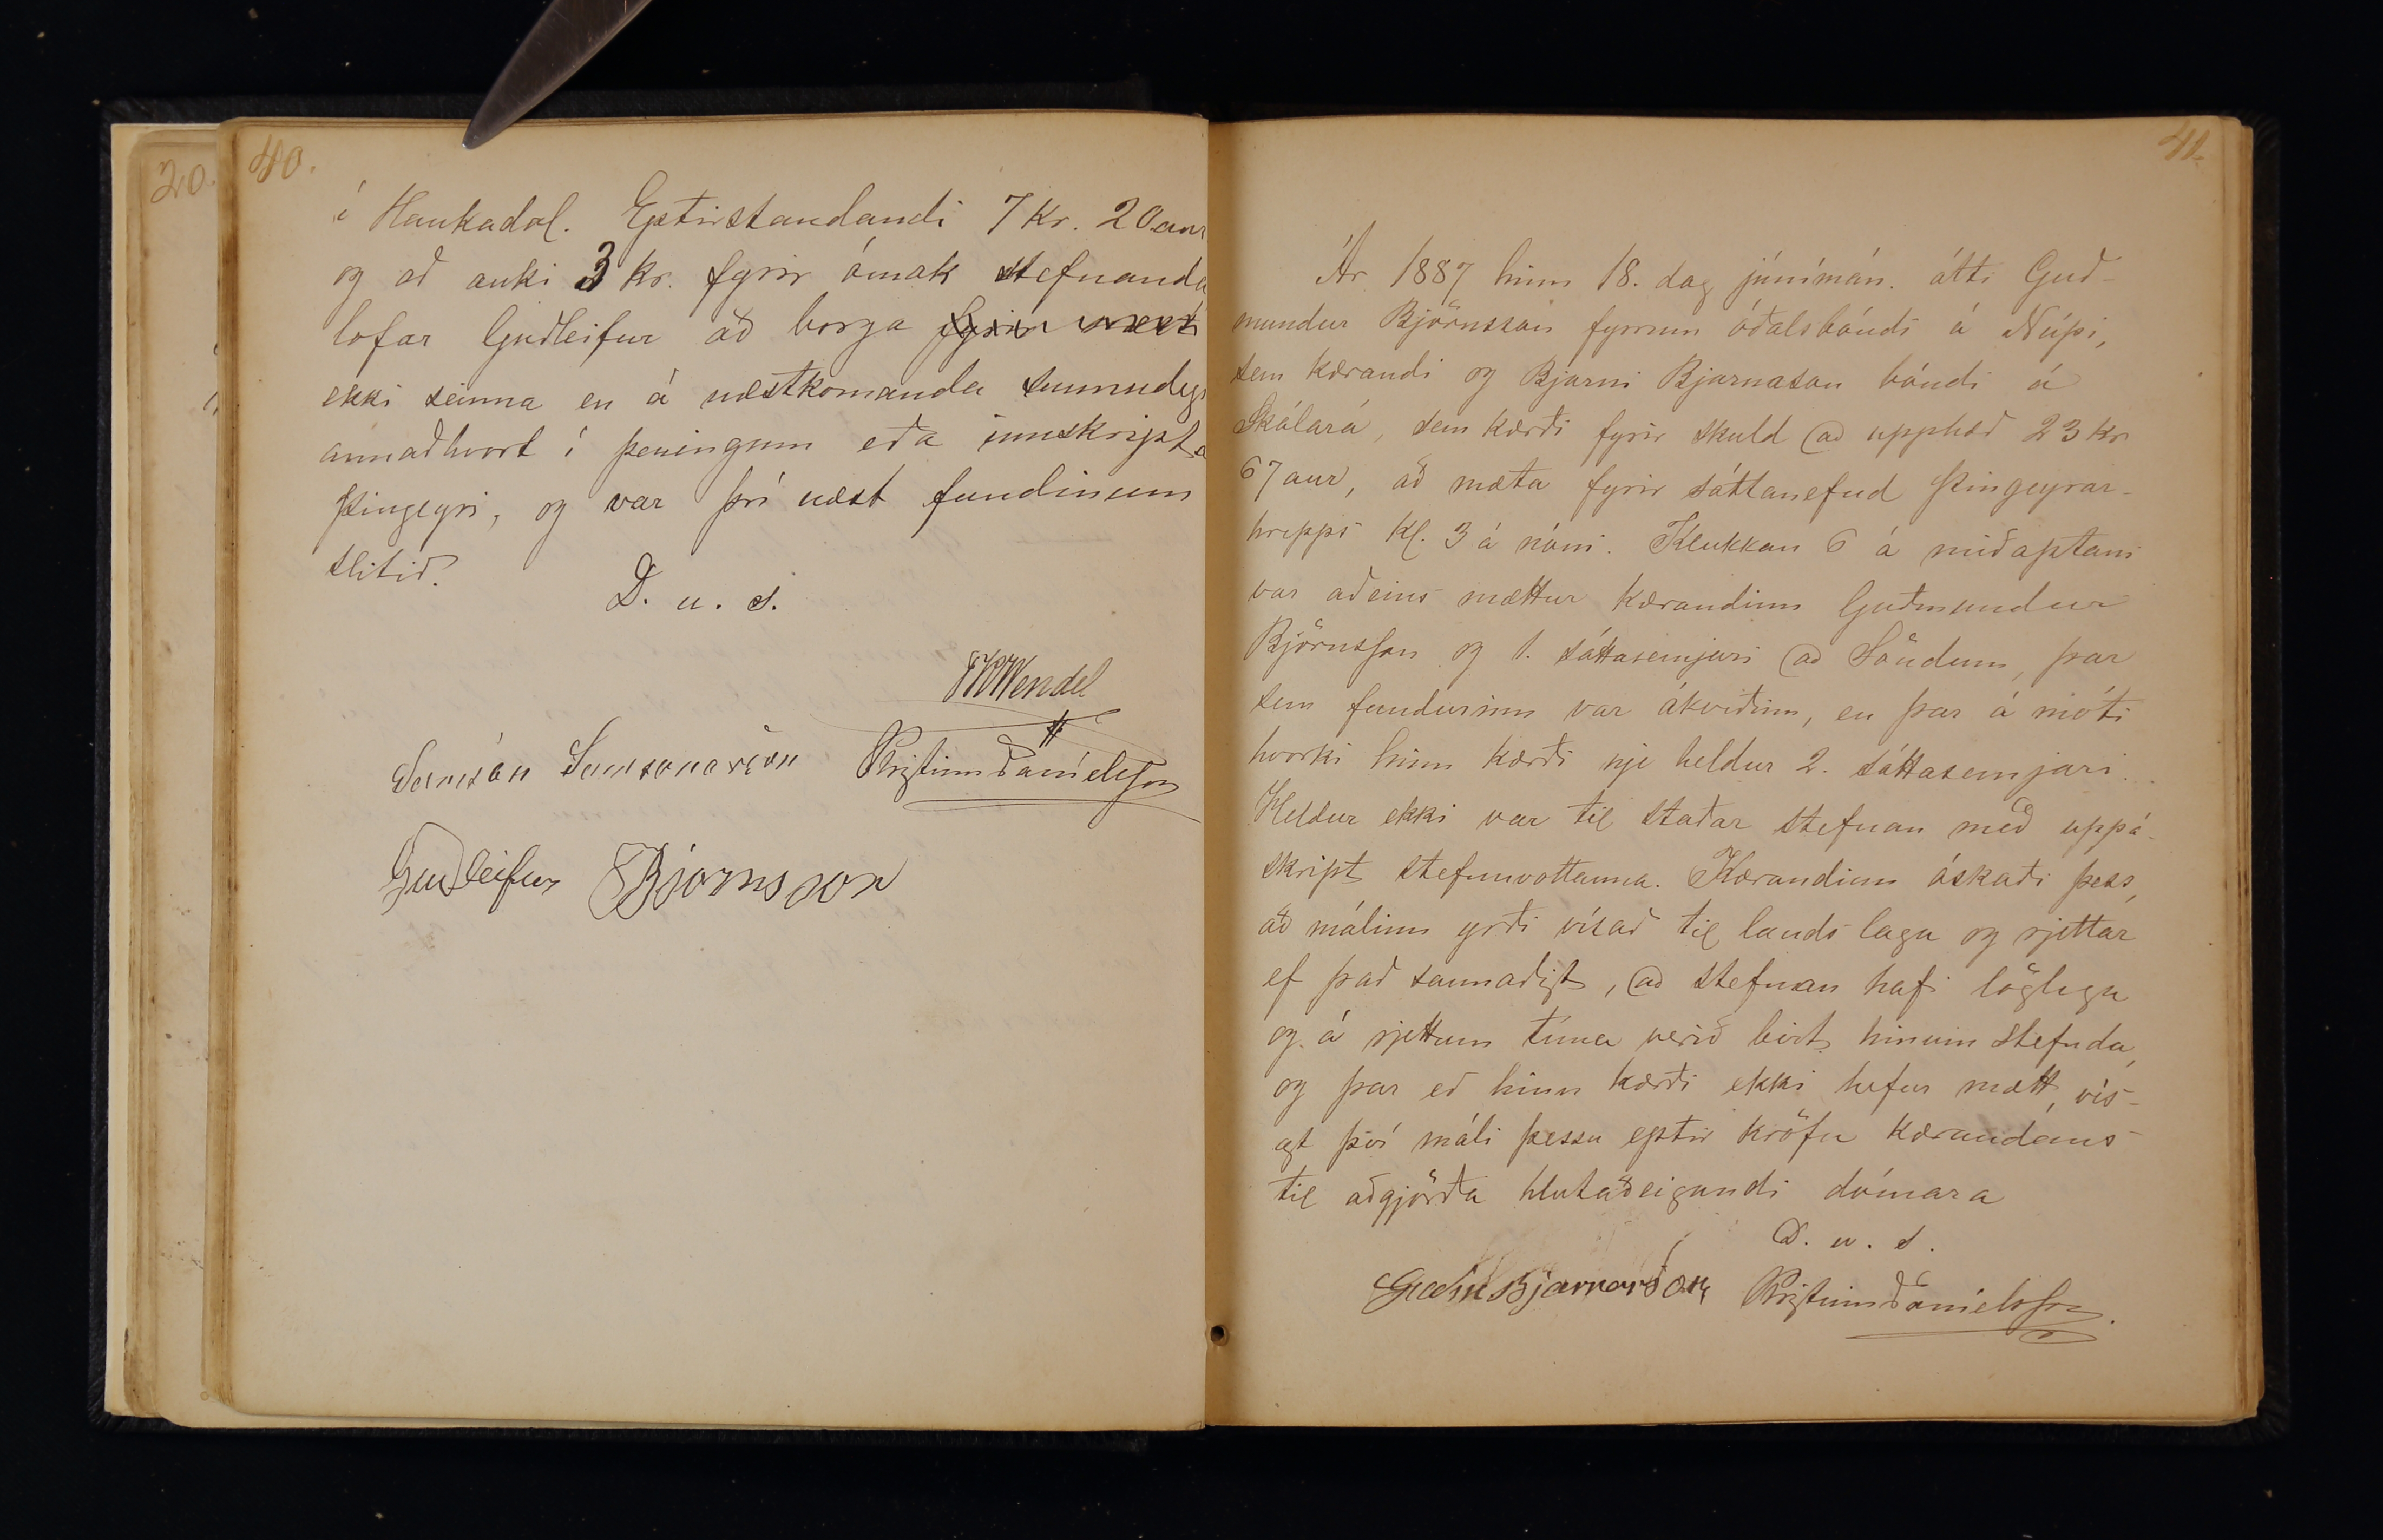 20.
40.
í Haukadal. Eptirstandandi 7 Kr. 20 aur
og að auki 3 kr. fyrir ómak stefnanda
lofar Guðleifur að borga fyrir næst
ekki seinna en á næstkomanda sunnudegi
annaðhvort í peningum eða innskript á
Þingeyri, og var því næst fundinum
slitið.
D. u. s.
FRWendel
Samsón Samsonarson Kristinn Daníelsson
Guðleifur Bjornsson
41.
Ár 1887 hinn 18. dag júnímán. átti Guð-
mundur Björnsson fyrrum óðalsbóndi á Núpi,
sem kærandi og Bjarni Bjarnason bóndi á
Skálará, sem kærði fyrir skuld að upphæð 23 kr
67 aur, að mæta fyrir sáttanefnd Þingeyrar-
hrepps Kl. 3 á nóni. Klukkan 6 á miðaptani
var aðeins mættur kærandinn Guðmundur
Björnsson og 1. sáttasemjari að Söndum, þar
sem fundurinn var ákveðinn, en þar á móti
hvorki hinn kærði nje heldur 2. sáttasemjari.
Heldur ekki var til staðar stefnan með uppá-
skript stefnuvottanna. Kærandinn óskaði þess,
að málinu yrði vísað til lands laga og rjettar
ef það sannaðist, að stefnan hafi löglega
og á rjettum tíma verið birt hinum stefnda,
og þar eð hinn kærði ekki hefur mætt, vís-
ast því máli þessu eptir kröfu kærandans
til aðgjörða hlutaðeigandi dómara
D. u. s.
Guðm Bjarnarson Kristinn Daníelsson.